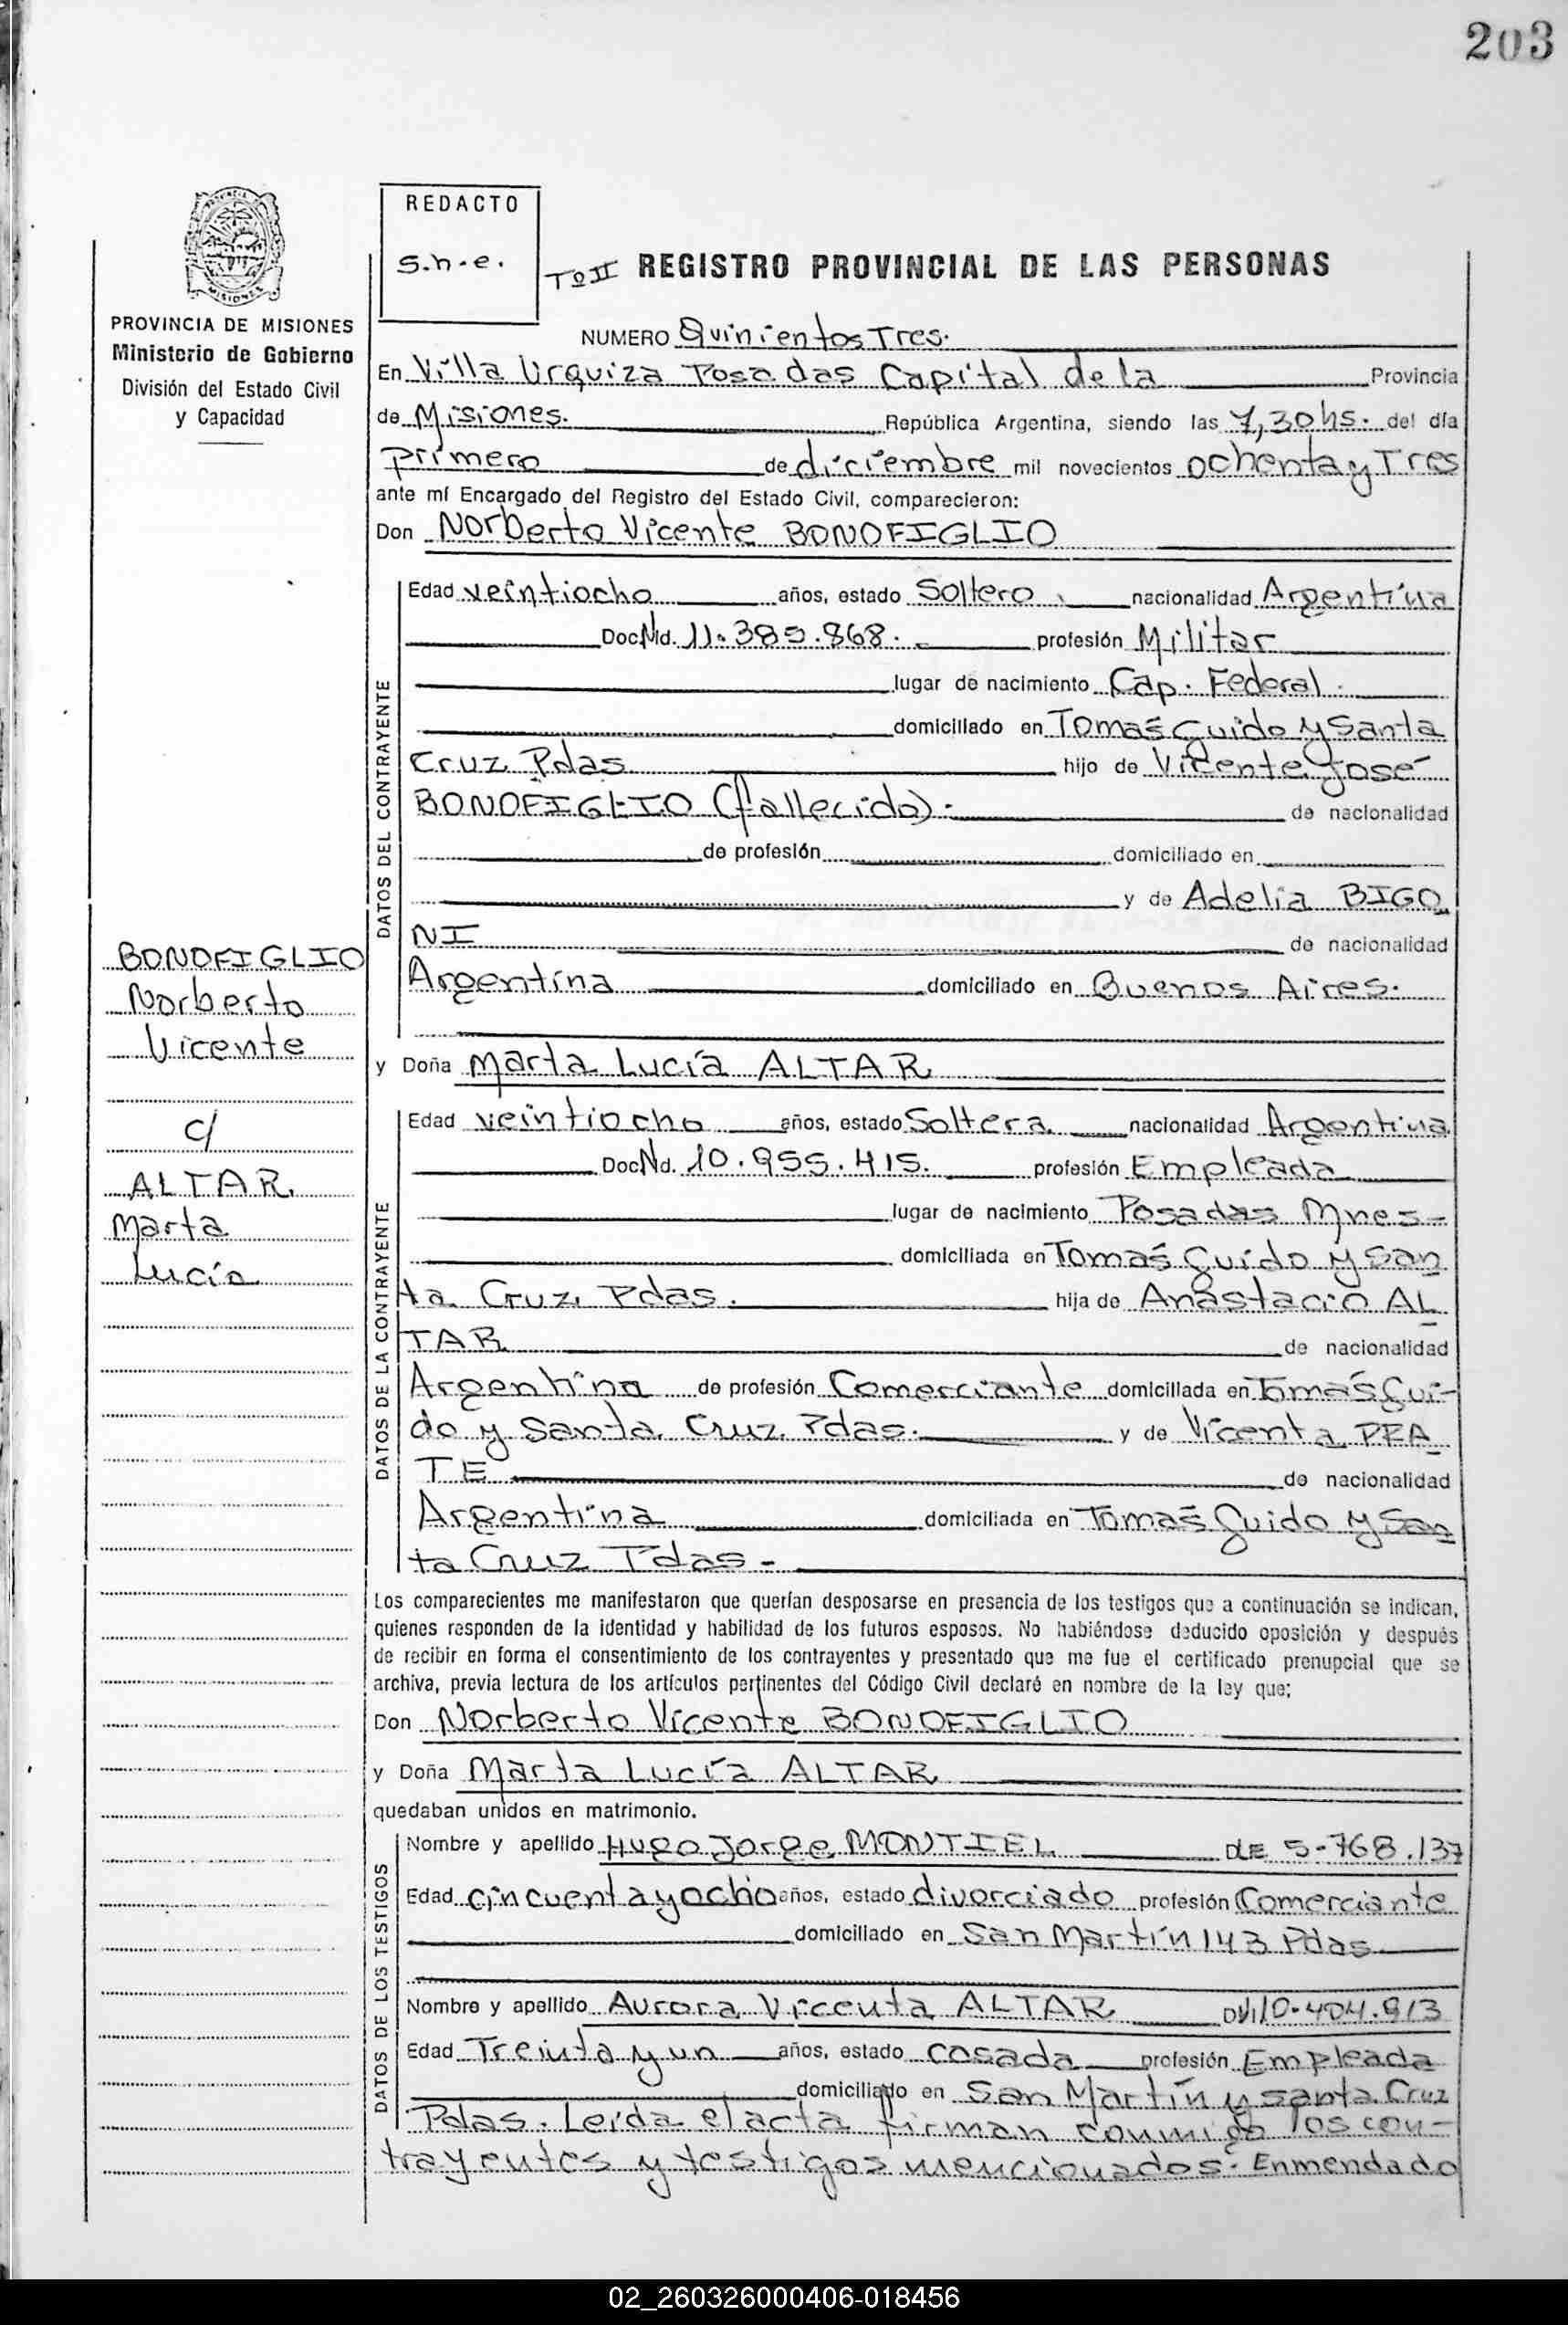 203
REDACTO
s.h.e.
Tº II REGISTRO PROVINCIAL DE LAS PERSONAS
PROVINCIA DE MISIONES
Ministerio de Gobierno
División del Estado Civil
y Capacidad
NUMERO Quinientos Tres.
En Villa Urquiza Posadas Capital de la Provincia
de Misiones. República Argentina, siendo las 7,30 hs. del día
primero de diciembre mil novecientos ochenta y Tres
ante mí Encargado del Registro del Estado Civil, comparecieron:
Don Norberto Vicente BONOFIGLIO
DATOS DEL CONTRAYENTE
Edad veintiocho años, estado Soltero nacionalidad Argentina
Doc. Nd. 11.385.868. profesión Militar
lugar de nacimiento Cap. Federal.
domiciliado en Tomas Guido y Santa
Cruz Pdas hijo de Vicente José
BONOFIGLIO (fallecido). de nacionalidad
de profesión domiciliado en
y de Adelia BIGO
NI de nacionalidad
Argentina domiciliado en Buenos Aires.
BONOFIGLIO
Norberto
Vicente
c/
ALTAR
Marta
Lucía
y Doña Marta Lucía ALTAR
DATOS DE LA CONTRAYENTE
Edad veintiocho años, estado Soltera nacionalidad Argentina
Doc. Nd. 10.955.415. profesión Empleada
lugar de nacimiento Posadas Mnes-
domiciliada en Tomas Guido y San
ta Cruz Pdas. hija de Anastacio AL
TAR de nacionalidad
Argentina de profesión Comerciante domiciliada en Tomas Gui-
do y Santa Cruz Pdas. y de Vicenta PEA
TE de nacionalidad
Argentina domiciliada en Tomas Guido y San
ta Cruz Pdas-
Los comparecientes me manifestaron que querían desposarse en presencia de los testigos que a continuación se indican,
quienes responden de la identidad y habilidad de los futuros esposos. No habiéndose deducido oposición y después
de recibir en forma el consentimiento de los contrayentes y presentado que me fue el certificado prenupcial que se
archiva, previa lectura de los artículos pertinentes del Código Civil declaré en nombre de la ley que:
Don Norberto Vicente BONOFIGLIO
y Doña Marta Lucía ALTAR
quedaban unidos en matrimonio.
DATOS DE LOS TESTIGOS
Nombre y apellido Hugo Jorge MONTIEL DLE 5-768.137
Edad cincuenta y ocho años, estado divorciado profesión Comerciante
domiciliado en San Martín 143 Pdas
Nombre y apellido Aurora Vicenta ALTAR 10.404.913
Edad Treinta y un años, estado casada profesión Empleada
domiciliado en San Martín y santa Cruz
Pdas. Leída el acta firman conmigo los con-
trayentes y testigos mencionados. Enmendado
02_260326000406-018456